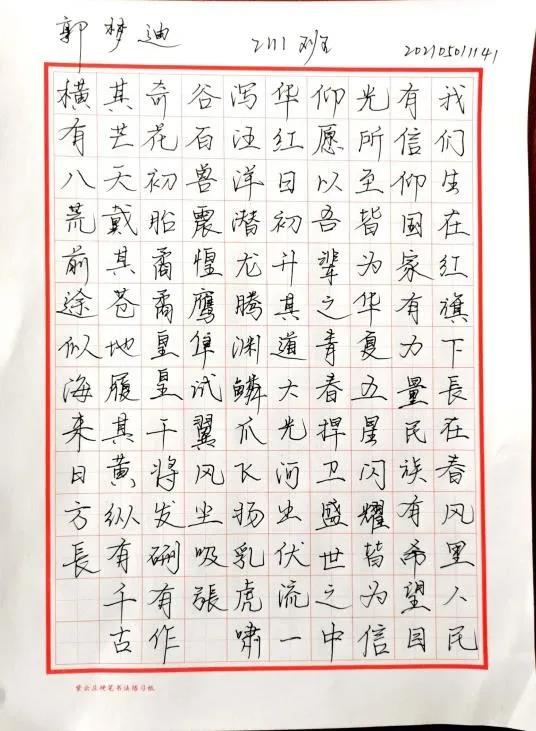 郭梦迪 2111班 202105011141
我们生在红旗下長在春风里人民
有信仰国家有力量民族有希望目
光所至皆为华夏五星闪耀皆为信
仰愿以吾辈之青春捍卫盛世之中
华红日初升其道大光河出伏流一
泻汪洋潜龙腾渊鳞爪飞扬乳虎啸
谷百兽震惶鹰隼试翼风尘吸張
奇花初胎矞矞皇皇干将发硎有作
其芒天戴其苍地履其黄纵有千古
横有八荒前途似海来日方長
紫云庄硬笔书法练习纸